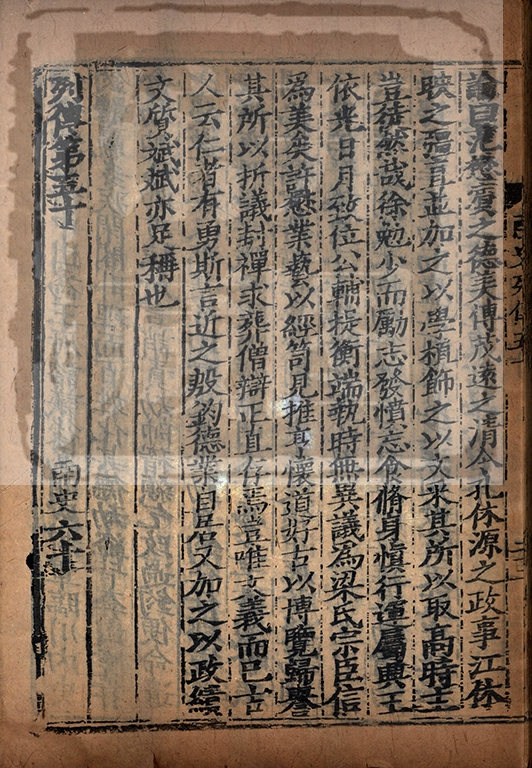 論曰范懋賓之德美傅茂遠之清令孔休源之政事江休
暎之彊直並加之以學植飾之以文采其所以取高時主
豈徒然哉徐勉少而勵志發憤忘食脩身慎行運屬興王
依光日月致位公輔提衡端執時無異議為梁氏宗臣信
為美矣許懋業藝以經笥見推亨懷道好古以博覽歸譽
其所以折議封禪求葬僧辯正直存焉豈唯文義而已古
人云仁者有勇斯言近之殷鈞德業自居又加之以政績
文質斌斌亦足稱也
列傳第五十
南史六十